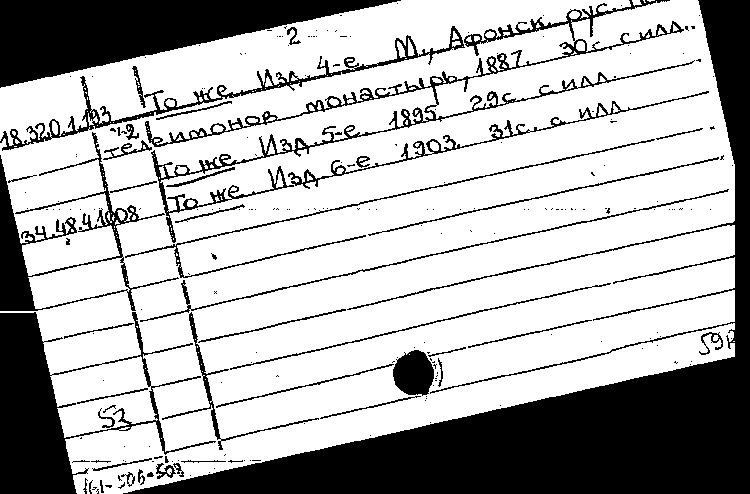 2
18.320.1.193 То же. Изд. 4-е. М., Афонск. рус.
ч.2 телеимонов монастырь, 1887. 30 с. с илл.
То же. Изд. 5-е. 1895. 29 с. с илл.
34.48.4.1008 То же. Изд. 6-е. 1903. 31 с. с илл.
53